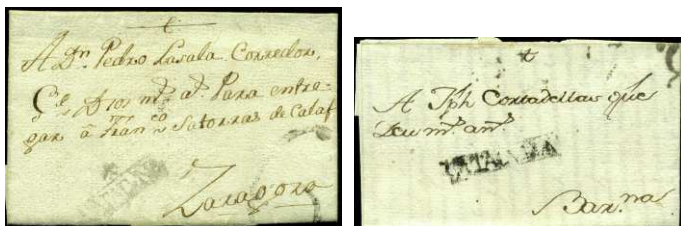 A Dⁿ. Pedro Lasala Corredor,
Gᵉ. D ios mˢ. aˢ. Para entre
gar â Franᶜᵒ Satorras de Calaf
Zaragoza
A Jph Cortadellas que
Deu mˢ. anˢ
CATALUÑA
Barⁿᵃ